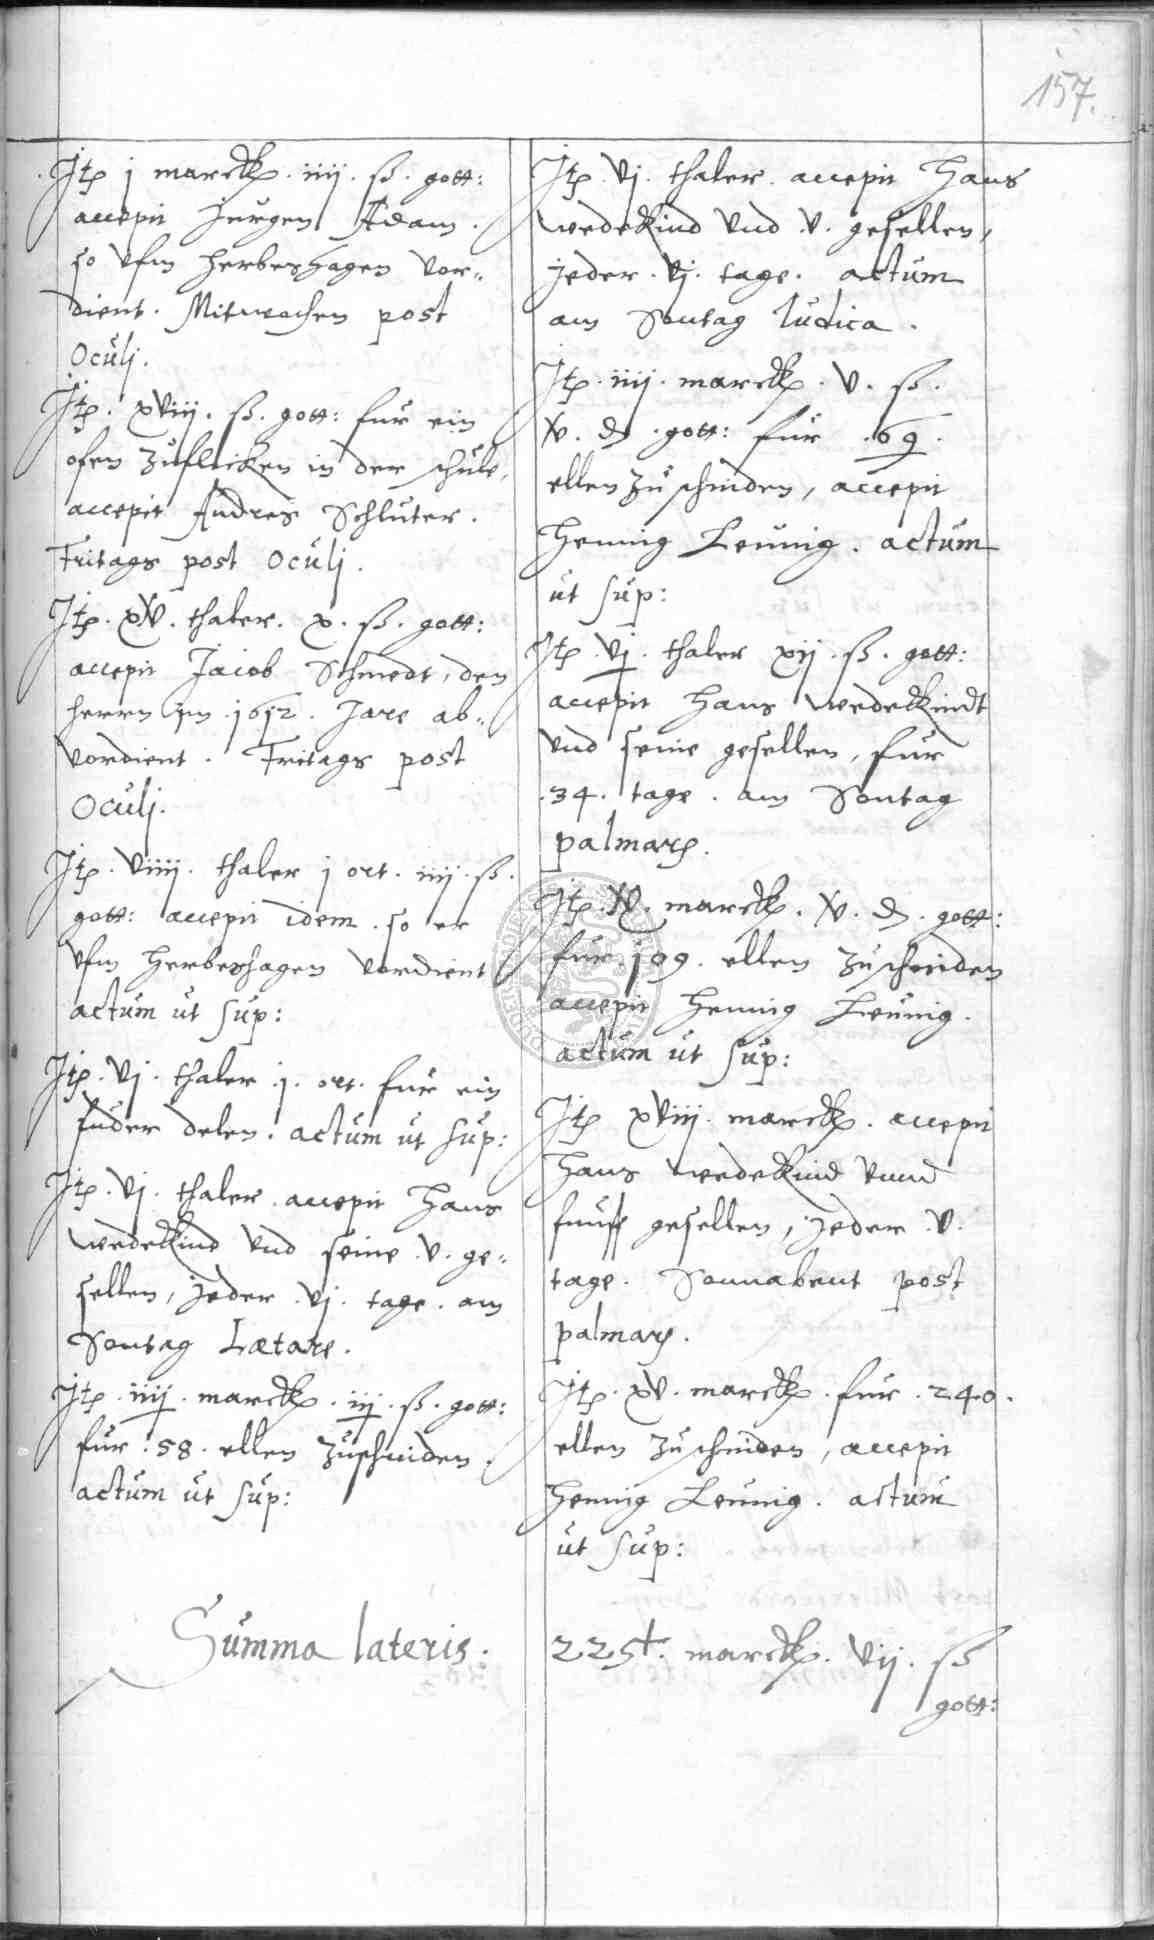 157.
Jtem j marck. iiij. ß. gott:
accepit Jurgen Adam.
so vfm Herbeshagen vor„
dient. Mitwochen post
Oculj.
Jtem. xviij. ß. gott: fur ein
ofen zuflicken in der schule,
accepit Andres Schluter.
Fritags post Oculj.
Jtem. xv. thaler. x. ß. gott:
accepit Jacob Schmedt, den
herrn im 1612. Jare ab„
vordient. Fritags post
Oculj.
Jtem. viiij. thaler j ort. iiij. ß.
gott: accepit idem. so er
vfm Herbeshagen vordient
actum ut sup:
Jtem. vj. thaler. j. ort. fur ein
fuder delen. actum ut sup:
Jtem. vj. thaler accepit Hans
wedekind vnd seine .v. ge„
sellen, jeder .vj. tage. am
Sontag Lætare.
Jtem. iiij. marck. iij. ß. gott:
fur .58. ellen zuschniden.
actum ut sup:
Jtem. vj. thaler. accepit Hans
wedekind vnd .v. gesellen,
jeder .vj. tage. actum
am Sontag Iudica.
Jtem. iiij. marck. v. ß.
v. d. gott: fur .69.
ellen zu schniden, accepit
Hennig Leunig. actum
ut sup:
Jtem. vj. thaler xij. ß. gott:
accepit Hans wedekindt
vnd seine gesellen, fur
.34. tage. am Sontag
palmarum.
Jtem. xv. marck. v. d. gott:
fur .109. ellen zu schniden
accepit Hennig Leunig.
actum ut sup:
Jtem xviij. marck. accepit
Hans wedekind vnnd
funff gesellen, jeder .v.
tage. Sonnabent post
palmarum.
Jtem. xv. marck. fur .240.
ellen zu schniden, accepit
Hennig Leunig. actum
ut sup:
Summa lateris: 225 marck. vij. ß
gott: